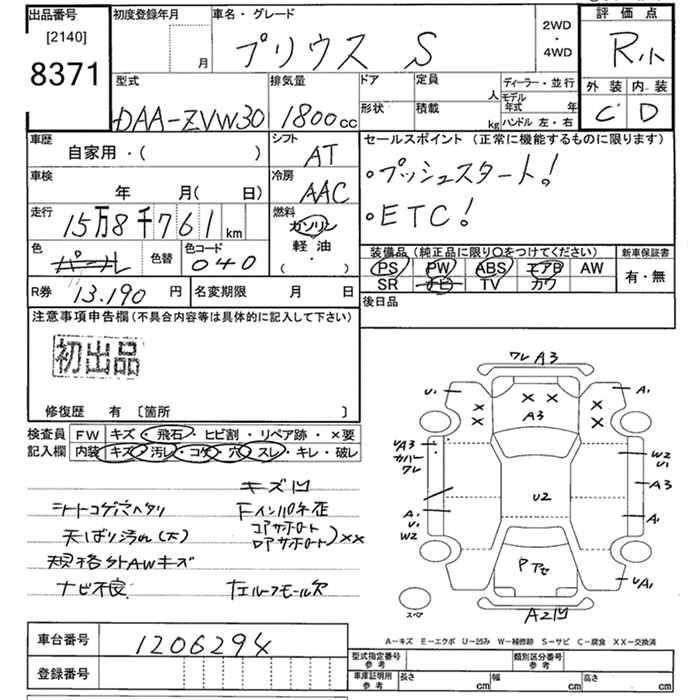 出品番号
[2140]
8371
初度登録年月
月
車名・グレード
プリウス S
2WD
・
4WD
評価点
R小
外装 内装
C D
型式
DAA-ZVW30
排気量
1800cc
ドア
形状
定員
人
積載
kg
ディーラー・並行
モデル年式 年
ハンドル 左・右
車歴
自家用・( )
シフト
AT
車検
年 月( 日)
冷房
AAC
走行
15万8千761km
燃料
ガソリン
軽油
( ・ )
色
パール
色替
色コード
040
R券 13.190 円
名変期限 月 日
セールスポイント (正常に機能するものに限ります)
・プッシュスタート!
・ETC!
装備品 (純正品に限り○をつけてください)
PS PW ABS エアB AW
SR ナビ TV カワ
新車保証書
有・無
後日品
注意事項申告欄(不具合内容等は具体的に記入して下さい)
初出品
修復歴 有 〔箇所 〕
検査員記入欄
FW キズ・飛石・ヒビ割・リペア跡・×要
内装 キズ・汚レ・コゲ・穴・スレ・キレ・破レ
キズ凹
シートコゲ穴ヘタリ
天ばり汚れ(大)
規格外AWキズ
ナビ不良
Fインパネ歪
コアサポート
ロアサポート)××
左ルーフモール欠
ワレ A3
U1
A1
A3
UA3
カバー
ワレ
W2
U1
A3
U2
A1
U1
W2
A1
Pアセ
UA1
スペア
A2凹
A-キズ E-エクボ U-凹み W-補修跡 S-サビ C-腐食 XX-交換済
車台番号 1206294
登録番号
型式指定番号
参考
類別区分番号
参考
車庫証明用
参考
長さ cm
幅 cm
高さ cm